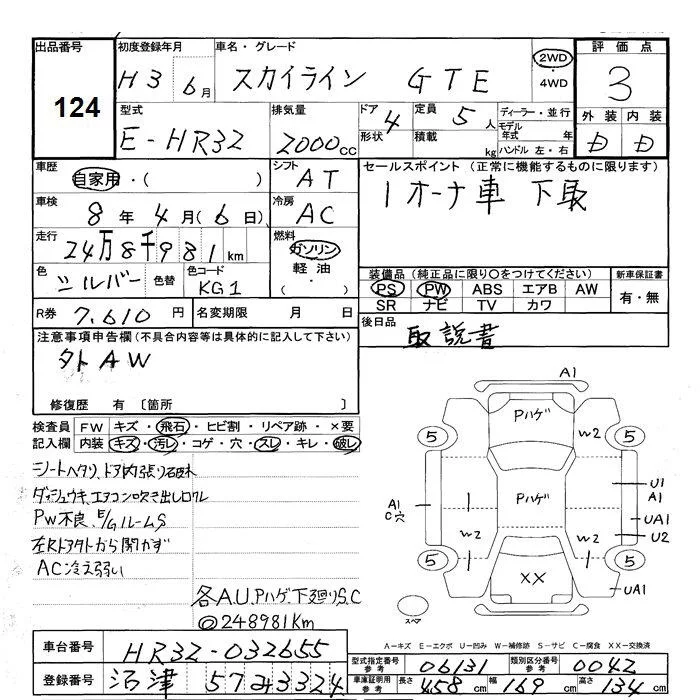 出品番号 初度登録年月 車名・グレード 評価点
124
H3 6月 スカイライン GTE 2WD・4WD 3
型式 排気量 ドア 形状 4 定員 5人 積載 kg ディーラー・並行 モデル年式 年 ハンドル 左・右 外装 内装
E-HR32 2000cc D D
車歴 自家用・( ) シフト AT セールスポイント (正常に機能するものに限ります)
1オーナ車 下取
車検 8年4月(6日) 冷房 AC
走行 24万8千981km 燃料 ガソリン 軽油 ・( )
色 シルバー 色替 色コード KG1
装備品(純正品に限り○をつけてください) 新車保証書
PS PW ABS エアB AW 有・無
SR ナビ TV カワ
R券 7,610円 名変期限 月 日
後日品 取説書
注意事項申告欄(不具合内容等は具体的に記入して下さい)
外AW
修復歴 有 〔箇所 〕
検査員記入欄 FW キズ・飛石・ヒビ割・リペア跡・×要
内装 キズ・汚レ・コゲ・穴・スレ・キレ・破レ
シートヘタリ、ドア内張り破れ
ダッシュウキ、エアコン吹き出し口ワレ
PW不良、E/GルームS
左Rドア外から開かず
AC冷え弱い
各A.U.Pハゲ、下廻りS.C
◎248981Km
A1
Pハゲ
W2
5 5
A1 C穴
Pハゲ
U1
A1
UA1
U2
W2 W2
5 5
××
UA1
スペア
A=キズ E=エクボ U=凹み W=補修跡 S=サビ C=腐食 XX=交換済
車台番号 HR32-032655
登録番号 沼津 57み3324
型式指定番号 参考 06131 類別区分番号 参考 0042
車庫証明用 参考 長さ 458cm 幅 169cm 高さ 134cm